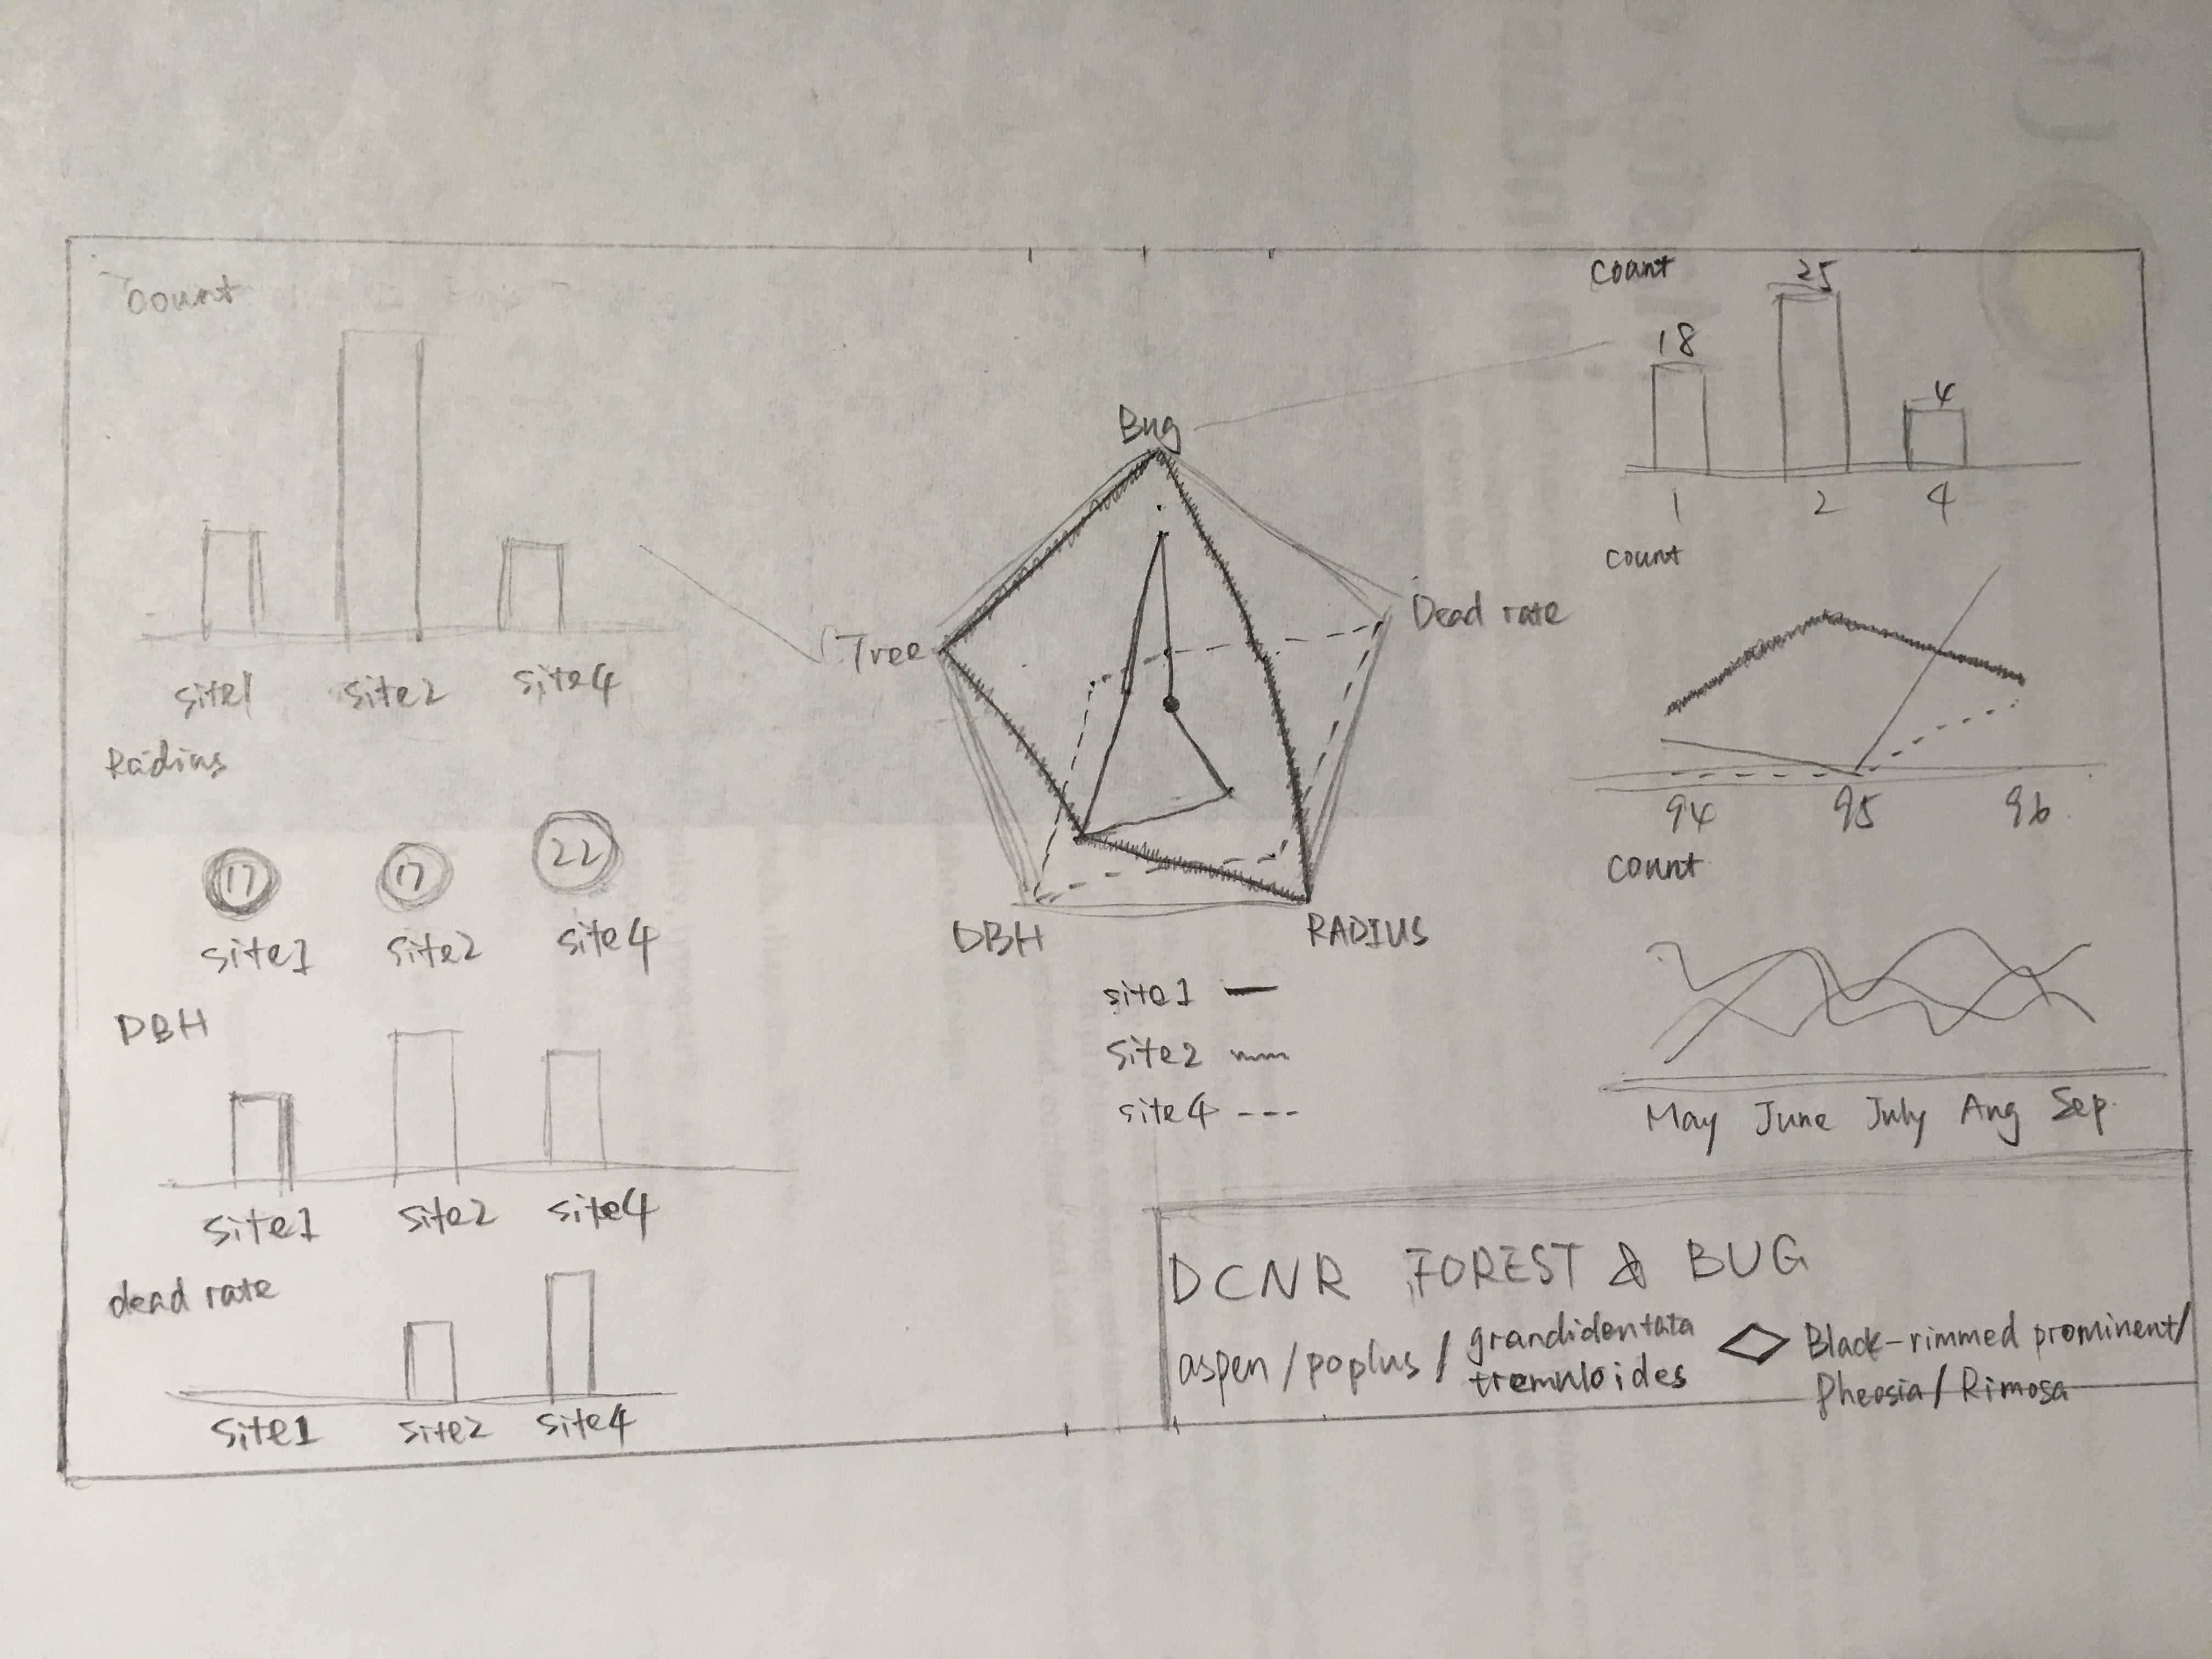 count
site1 site2 site4
Radius
17 17 22
site1 site2 site4
DBH
site1 site2 site4
dead rate
site1 site2 site4
Bug
Tree
Dead rate
DBH
RADIUS
site1
site2
site4
count
18 25 4
1 2 4
count
94 95 96
count
May June July Aug Sep.
DCNR FOREST & BUG
aspen/poplus/grandidentata
tremuloides
Black-rimmed prominent/
Pheosia/Rimosa